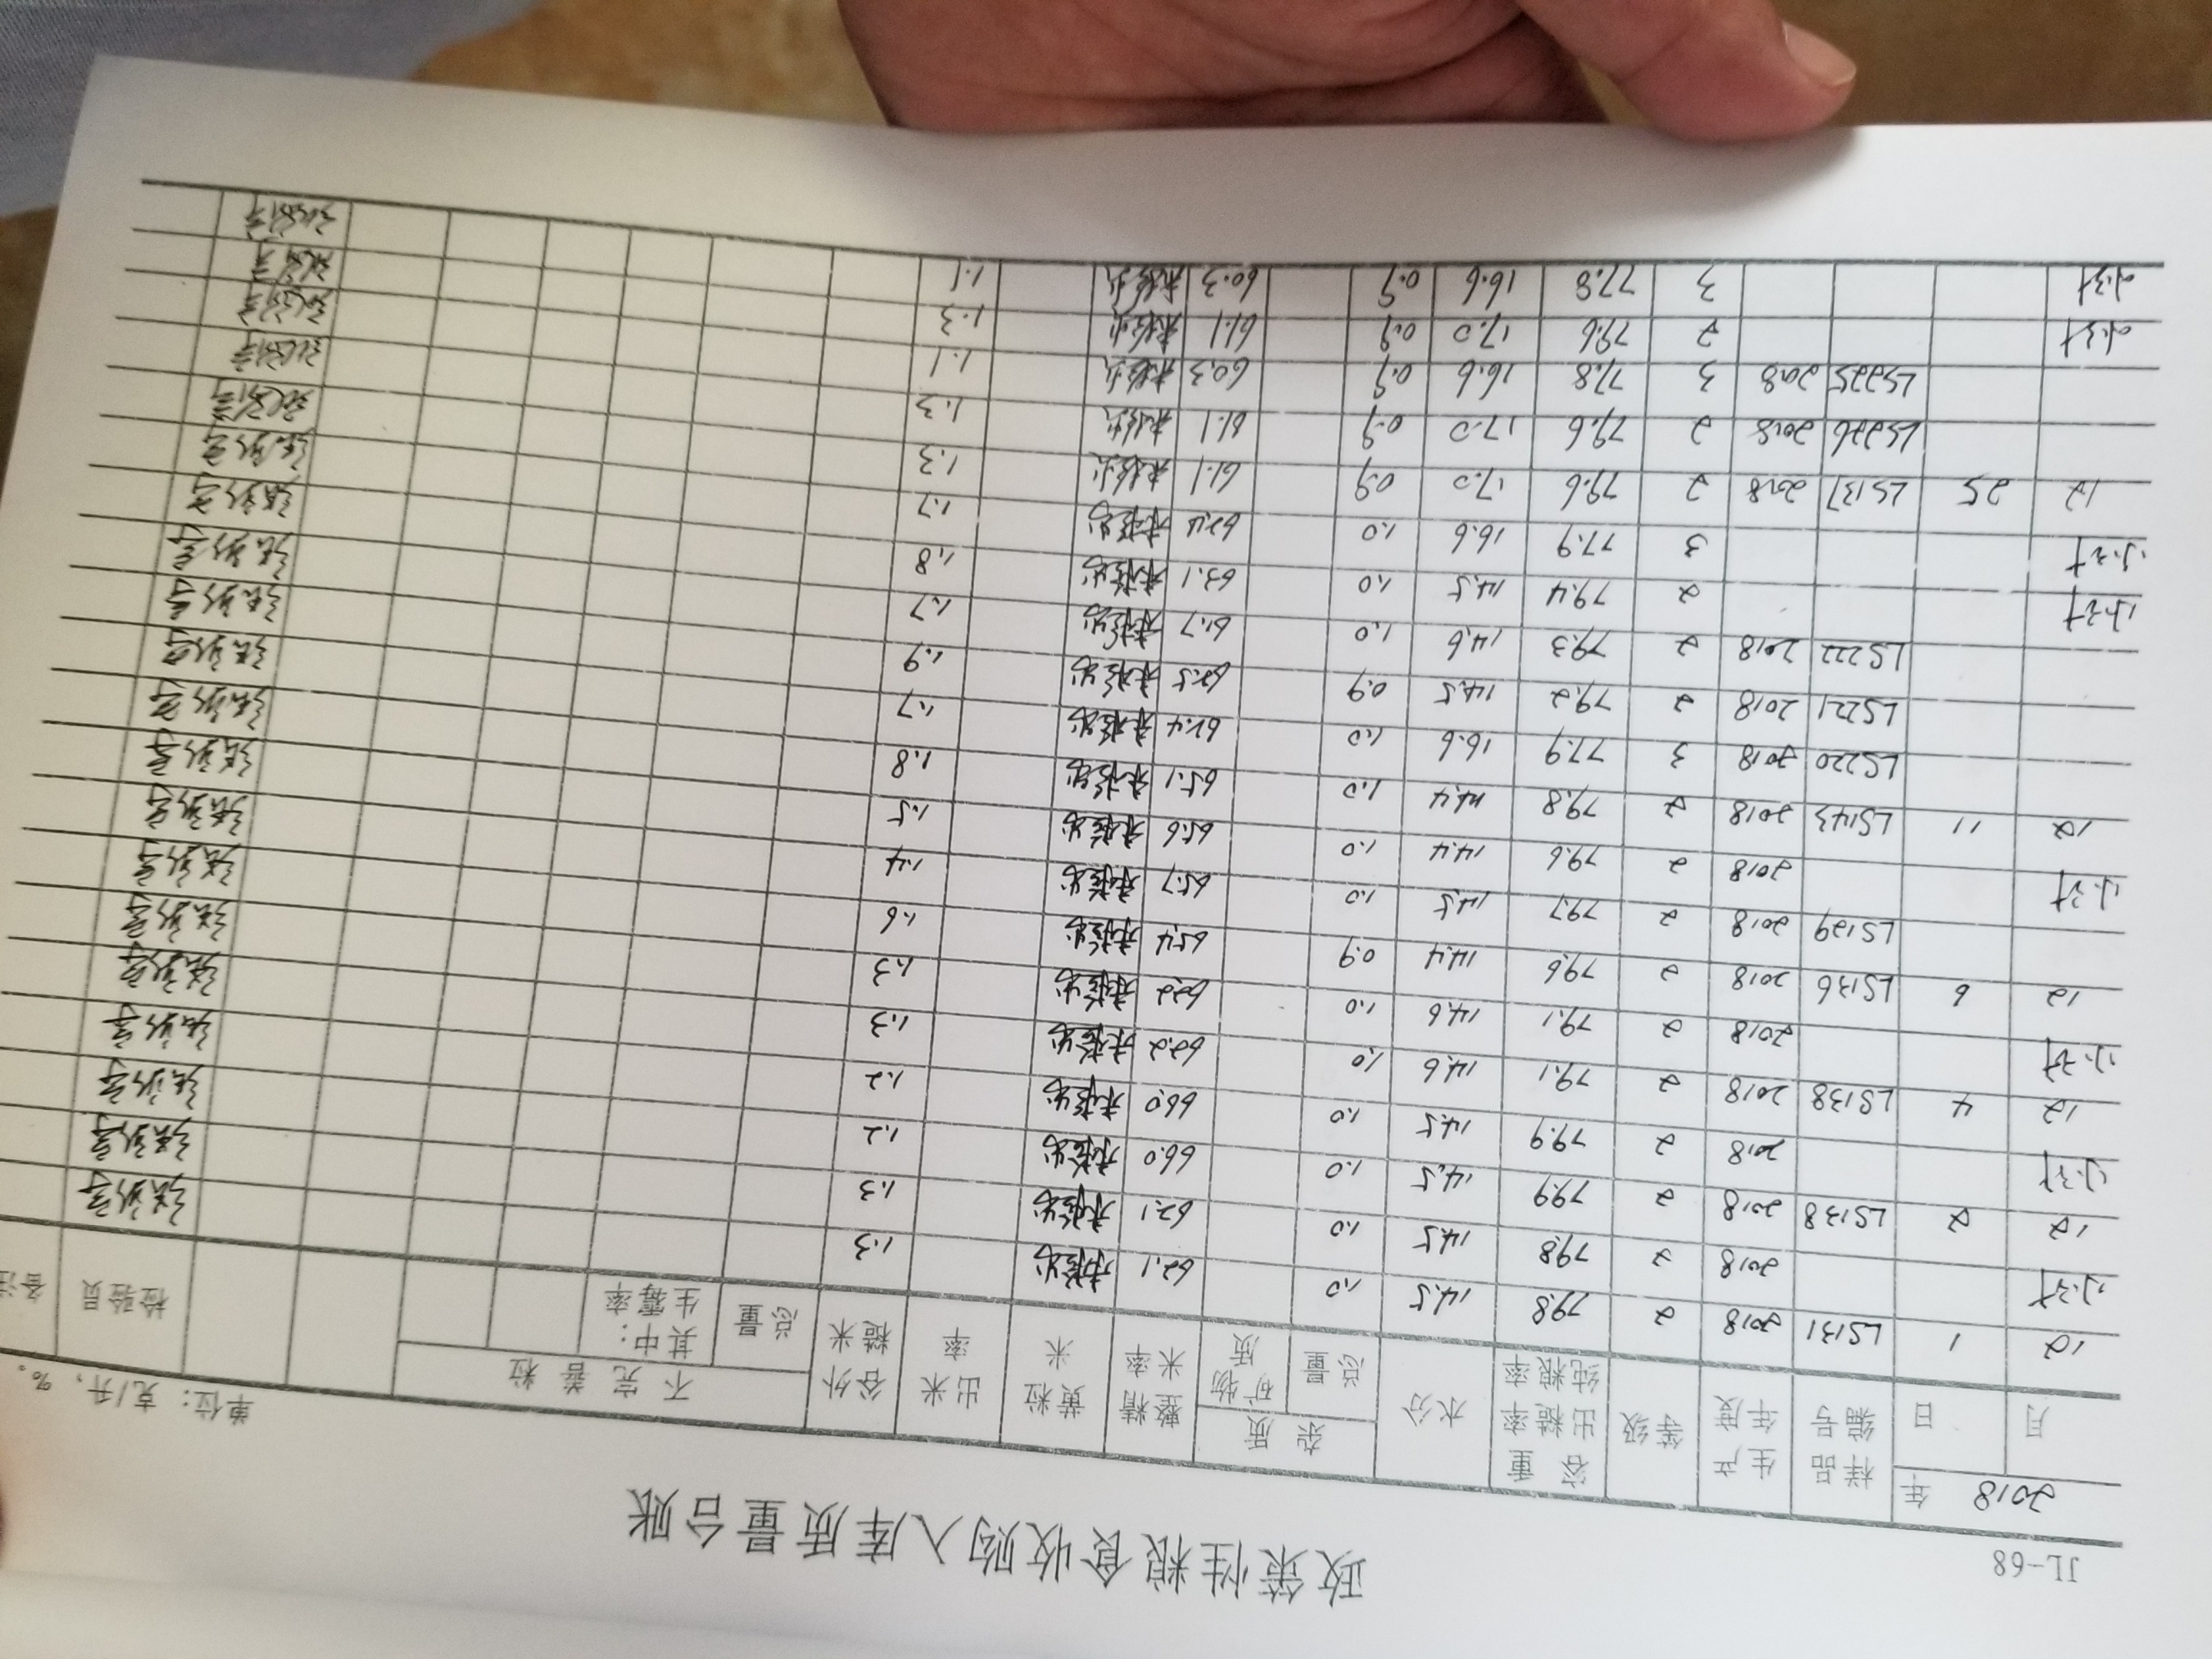 JL-68
政策性粮食收购入库质量台账
单位：克/升、%。
2018 年 样品编号 生产年度 等级 容重 出糙率 纯粮率 水分 杂质 整精米率 黄粒米 出米率 谷外糙米 不完善粒 检验员 备注
月 日 总量 矿物质 总量 其中：生霉率
12 1 LS131 2018 2 79.8 14.5 1.0 62.1 未检出 1.3 张新宇
小计 2018 2 79.8 14.5 1.0 62.1 未检出 1.3 张新宇
12 2 LS138 2018 2 79.9 14.5 1.0 66.0 未检出 1.2 张新宇
小计 2018 2 79.9 14.5 1.0 66.0 未检出 1.2 张新宇
12 4 LS138 2018 2 79.1 14.6 1.0 62.2 未检出 1.3 张新宇
小计 2018 2 79.1 14.6 1.0 62.2 未检出 1.3 张新宇
12 6 LS136 2018 2 79.6 14.4 0.9 65.4 未检出 1.6 张新宇
LS129 2018 2 79.7 14.5 1.0 65.7 未检出 1.4 张新宇
小计 2018 2 79.6 14.4 1.0 65.6 未检出 1.5 张新宇
12 11 LS143 2018 2 79.8 14.4 1.0 65.1 未检出 1.8 张新宇
LS220 2018 3 77.9 16.6 1.0 62.4 未检出 1.7 张新宇
LS221 2018 2 79.2 14.5 0.9 62.5 未检出 1.9 张新宇
LS222 2018 2 79.3 14.6 1.0 61.7 未检出 1.7 张新宇
小计 2 79.4 14.5 1.0 63.1 未检出 1.8 张新宇
小计 3 77.9 16.6 1.0 62.4 未检出 1.7 张新宇
12 25 LS137 2018 2 79.6 17.0 0.9 61.1 未检出 1.3 张新宇
LS226 2018 2 79.6 17.0 0.9 61.1 未检出 1.3 张新宇
LS225 2018 3 77.8 16.6 0.9 60.3 未检出 1.1 张新宇
小计 2 79.6 17.0 0.9 61.1 未检出 1.3 张新宇
小计 3 77.8 16.6 0.9 60.3 未检出 1.1 张新宇